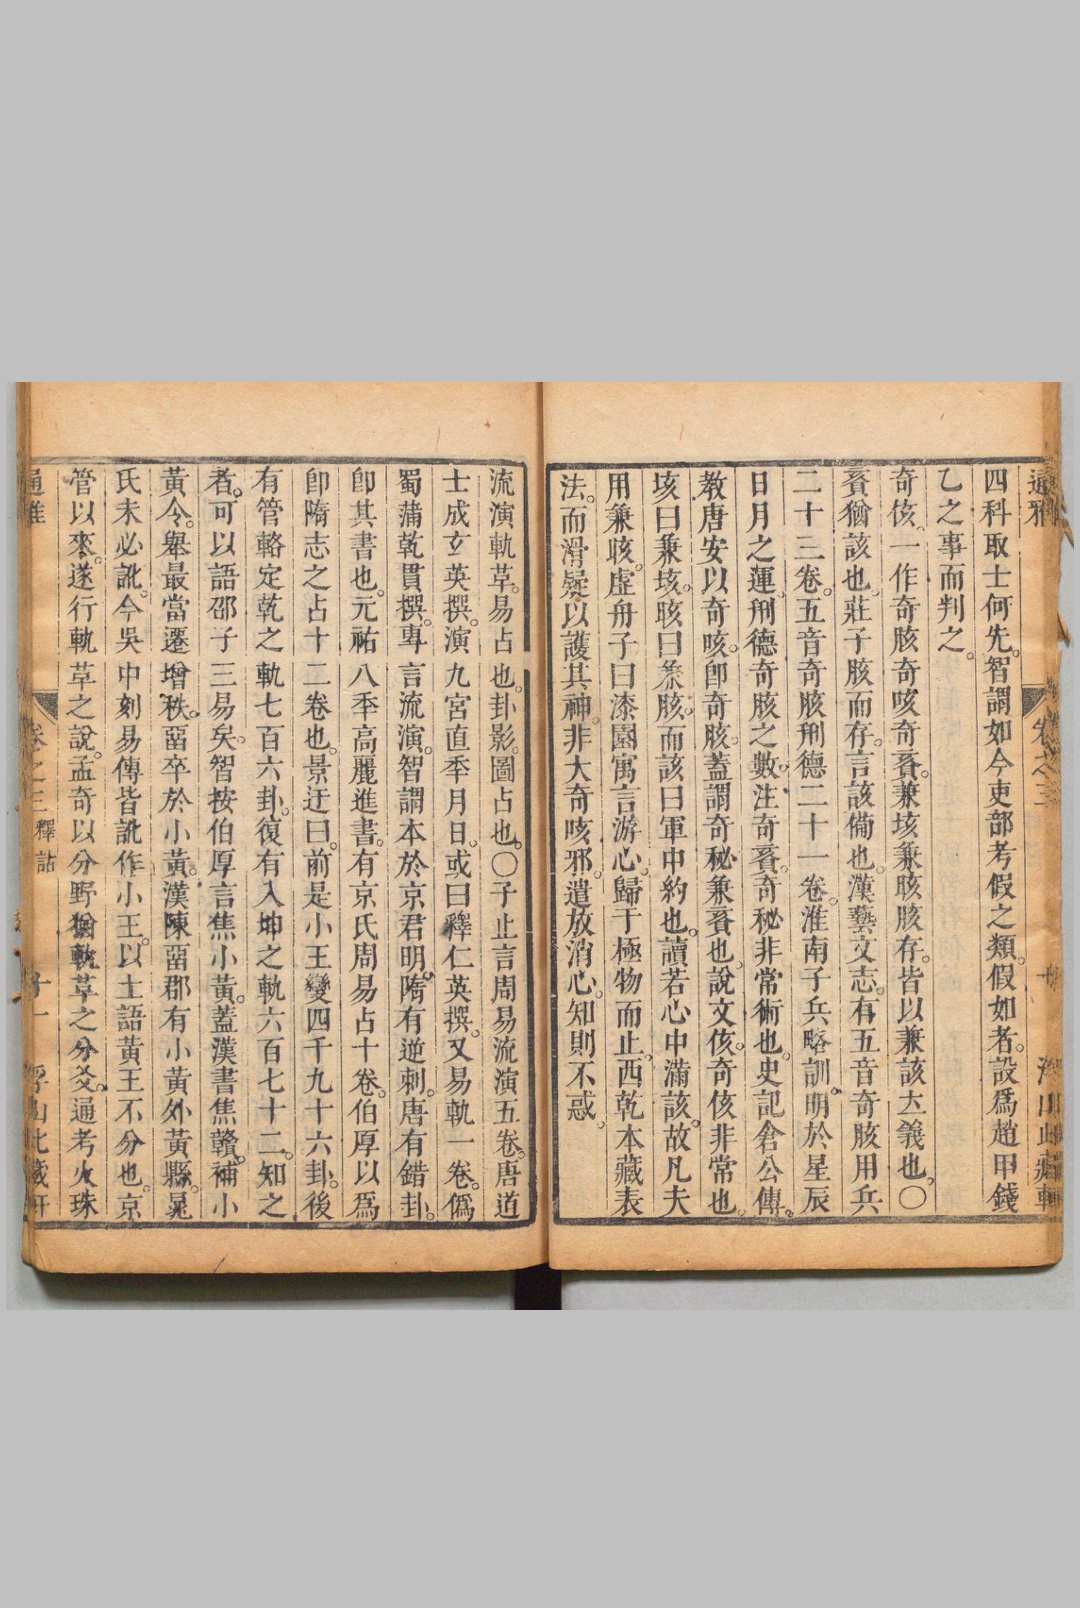 通雅 卷之三
四科取士何先智謂如今吏部考假之類假如者設爲趙甲錢
乙之事而判之
奇侅一作奇胲奇咳奇賌兼垓兼晐胲存皆以兼該大義也〇
賌猶該也莊子胲而存言該備也漢藝文志有五音奇胲用兵
二十三卷五音奇胲刑德二十一卷淮南子兵略訓明於星辰
日月之運刑德奇胲之數注奇賌奇秘非常術也史記倉公傳
教唐安以奇咳卽奇胲蓋謂奇秘兼賌也說文侅奇侅非常也
垓曰兼垓晐曰兼胲而該曰軍中約也讀若心中滿該故凡夫
用兼晐虛舟子曰漆園寓言游心歸于極物而止西乾本藏表
法而滑疑以護其神非大奇咳邪遣放消心知則不惑
流演軌草易占也卦影圖占也〇子止言周易流演五卷唐道
士成玄英撰演九宮直季月日或曰釋仁英撰又易軌一卷僞
蜀蒲乾貫撰專言流演智謂本於京君明隋有逆刺唐有錯卦
卽其書也元祐八季高麗進書有京氏周易占十卷伯厚以爲
卽隋志之占十二卷也景迂曰前是小王變四千九十六卦後
有管輅定乾之軌七百六卦復有入坤之軌六百七十二知之
者可以語邵子三易矣智按伯厚言焦小黃蓋漢書焦贛補小
黃令舉最當遷增秩畱卒於小黃漢陳畱郡有小黃外黃縣晁
氏未必訛今吳中刻易傳皆訛作小王以土語黃王不分也京
管以來遂行軌草之說孟奇以分野猶軌草之分爻通考火珠
通雅 卷之三 釋詁 十一 浮山此藏軒